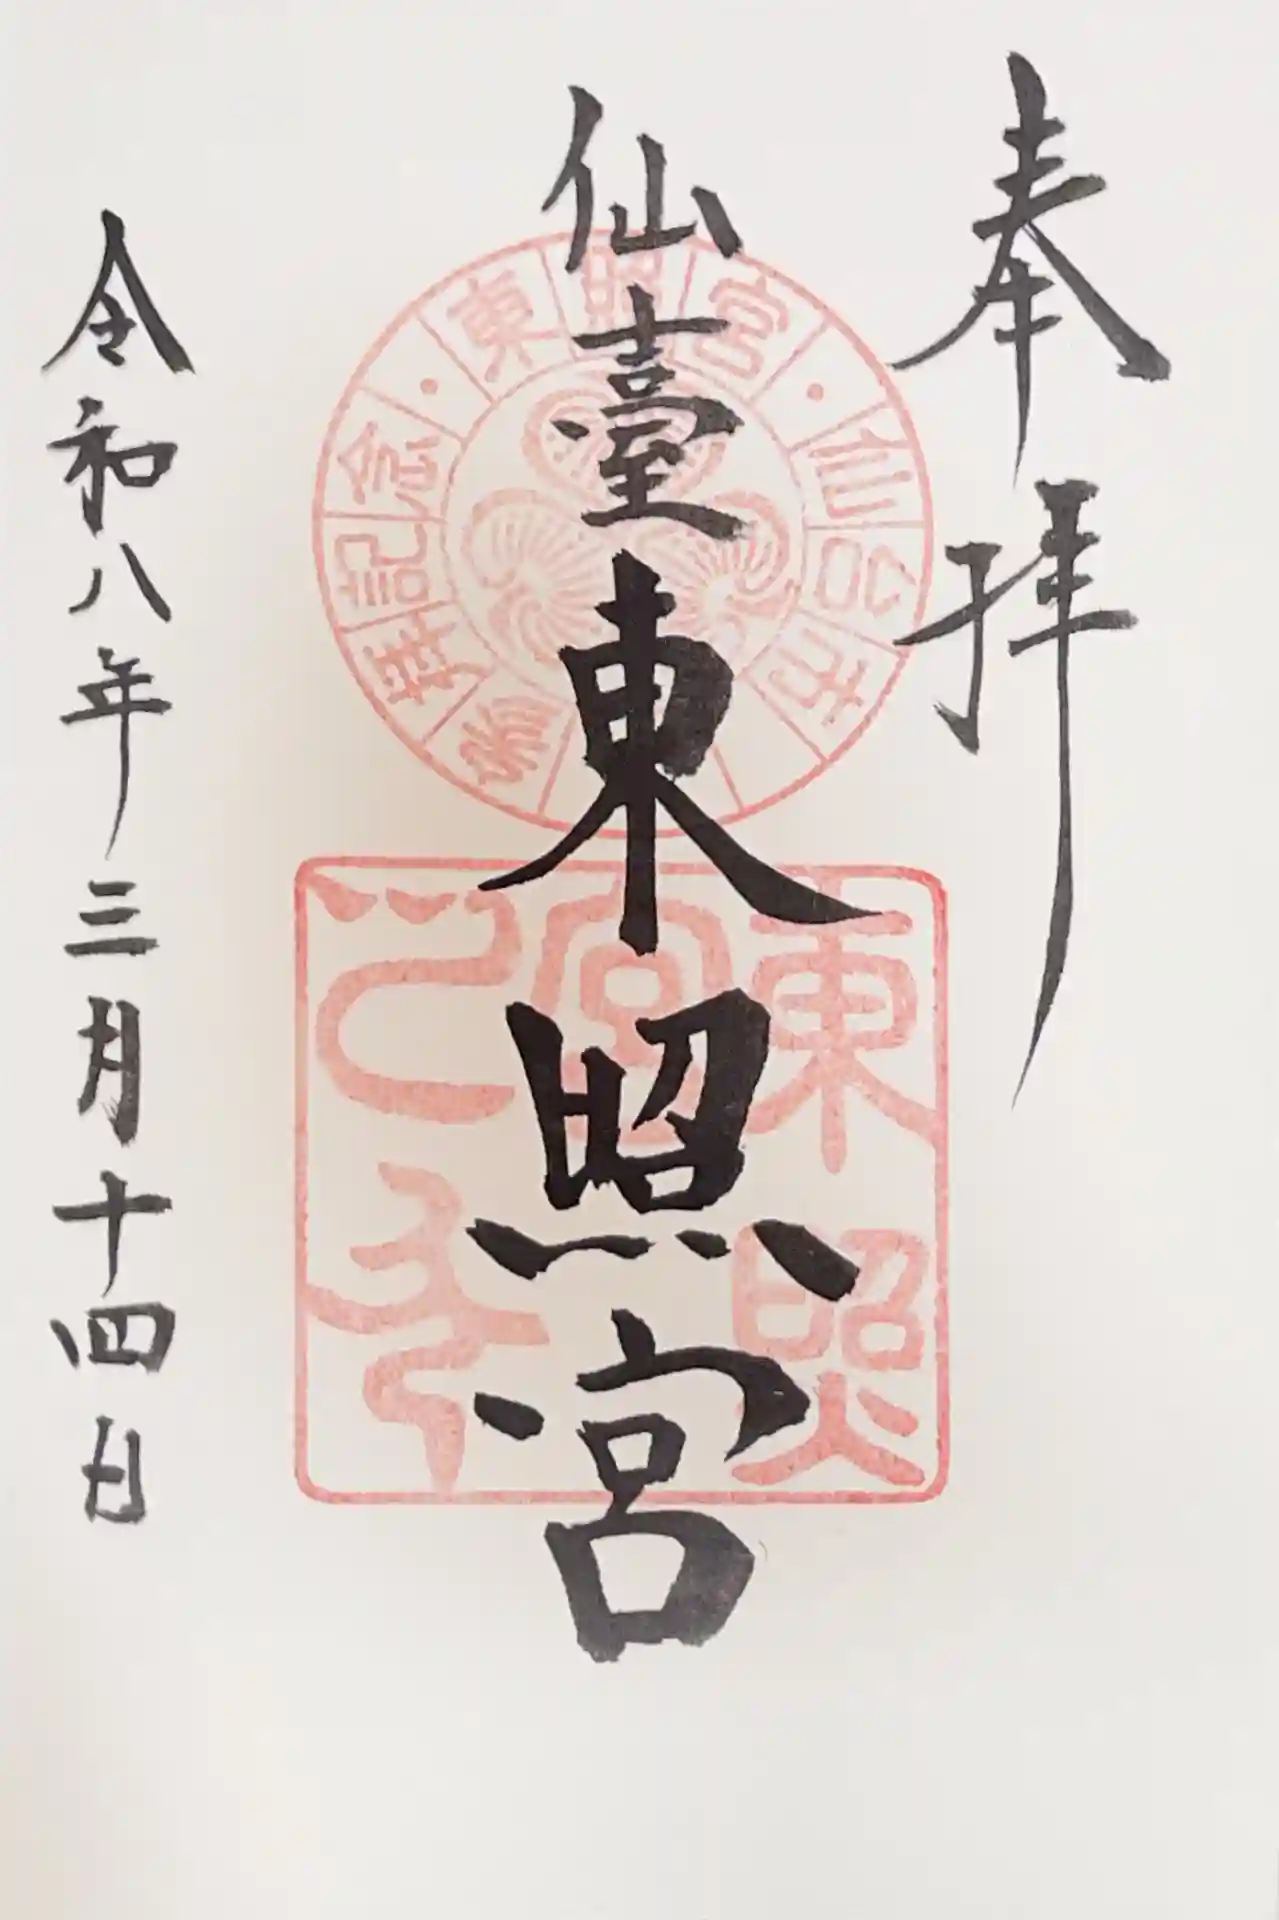 奉拝
仙臺東照宮
東照宮・仙台市
参拝記念・
東照
宮
之印
令和八年三月十四日